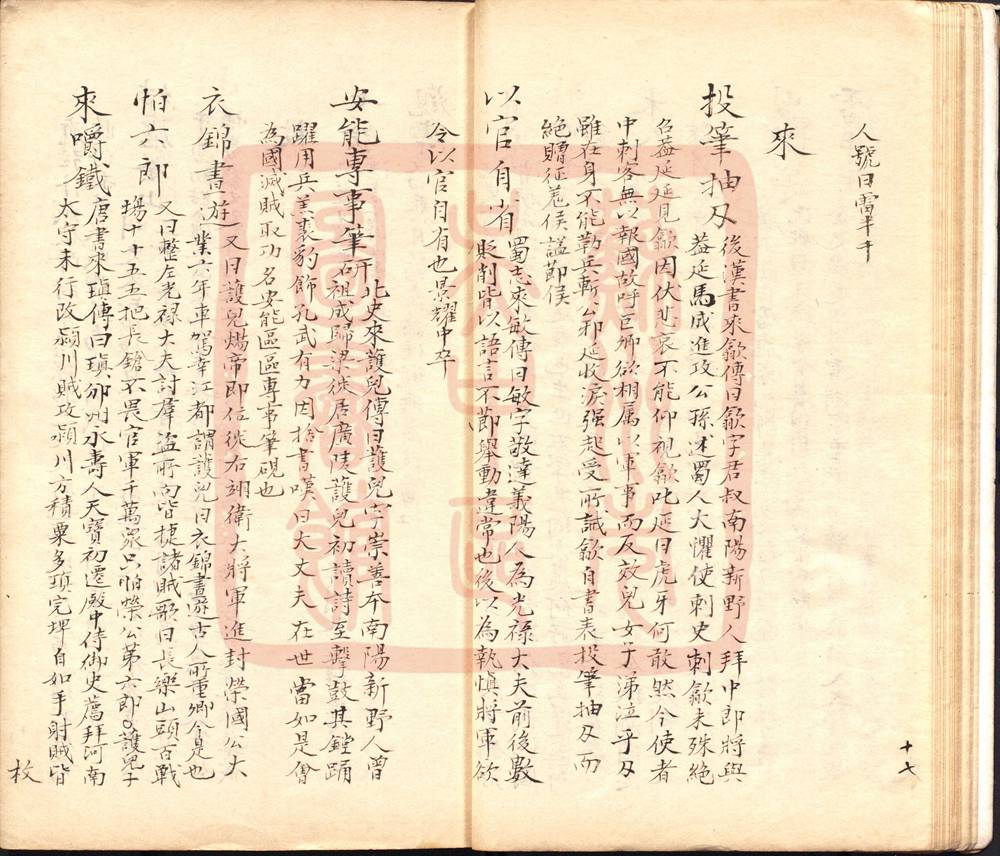 人號曰雷半千
來
投筆抽刃後漢書來歙傳曰歙字君叔南陽新野人拜中郎將與
蓋延馬成進攻公孫述蜀人大懼使刺史刺歙未殊絕
召蓋延延見歙因伏悲哀不能仰視歙叱延曰虎牙何敢然今使者
中刺客無以報國故呼巨卿欲相属以軍事而反效兒女子涕泣乎刃
雖在身不能勒兵斬公邪延收淚强起受所誡歙自書表投筆抽刃而
絕贈征羗侯謚節侯
以官自省蜀志來敏傳曰敏字敬達義陽人為光祿大夫前後數
貶削皆以語言不節舉動違常也後以為執慎將軍欲
令以官自省也景耀中卒
安能專事筆研北史來護兒傳曰護兒字崇善本南陽新野人曾
祖成歸梁徙居廣陵護兒初讀詩至擊鼓其鏜踊
躍用兵羔裘豹飾孔武有力因捨書嘆曰大丈夫在世當如是會
為國滅賊取功名安能區區專事筆硯也
衣錦晝遊又曰護兒煬帝即位徙右翊衛大將軍進封榮國公大
業六年車駕幸江都謂護兒曰衣錦晝遊古人所重卿今是也
怕六郎又曰整左光禄大夫討羣盜所向皆捷諸賊歌曰長樂山頭百戰
塲十十五五把長鎗不畏官軍千萬衆只怕榮公第六郎護兒子
來嚼鐵唐書來瑱傳曰瑱邠州永壽人天寶初遷殿中侍御史薦拜河南
太守未行改潁川賊攻潁川方積粟多項完埤自如手射賊皆
十七
枚